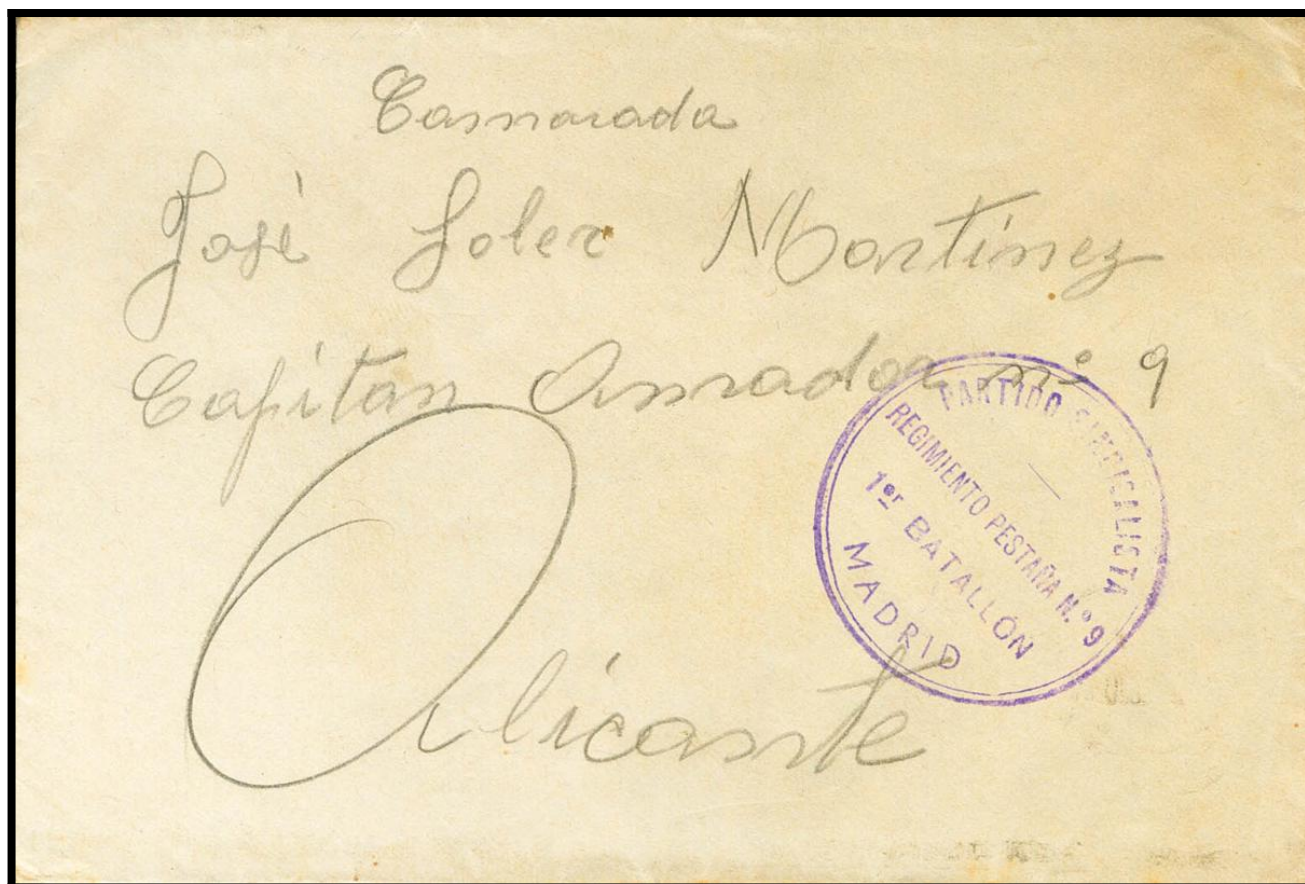 Camarada
José Soler Martínez
Capitan Amador nº 9
Alicante
PARTIDO SINDICALISTA
REGIMIENTO PESTAÑA N.º 9
1er BATALLÓN
MADRID